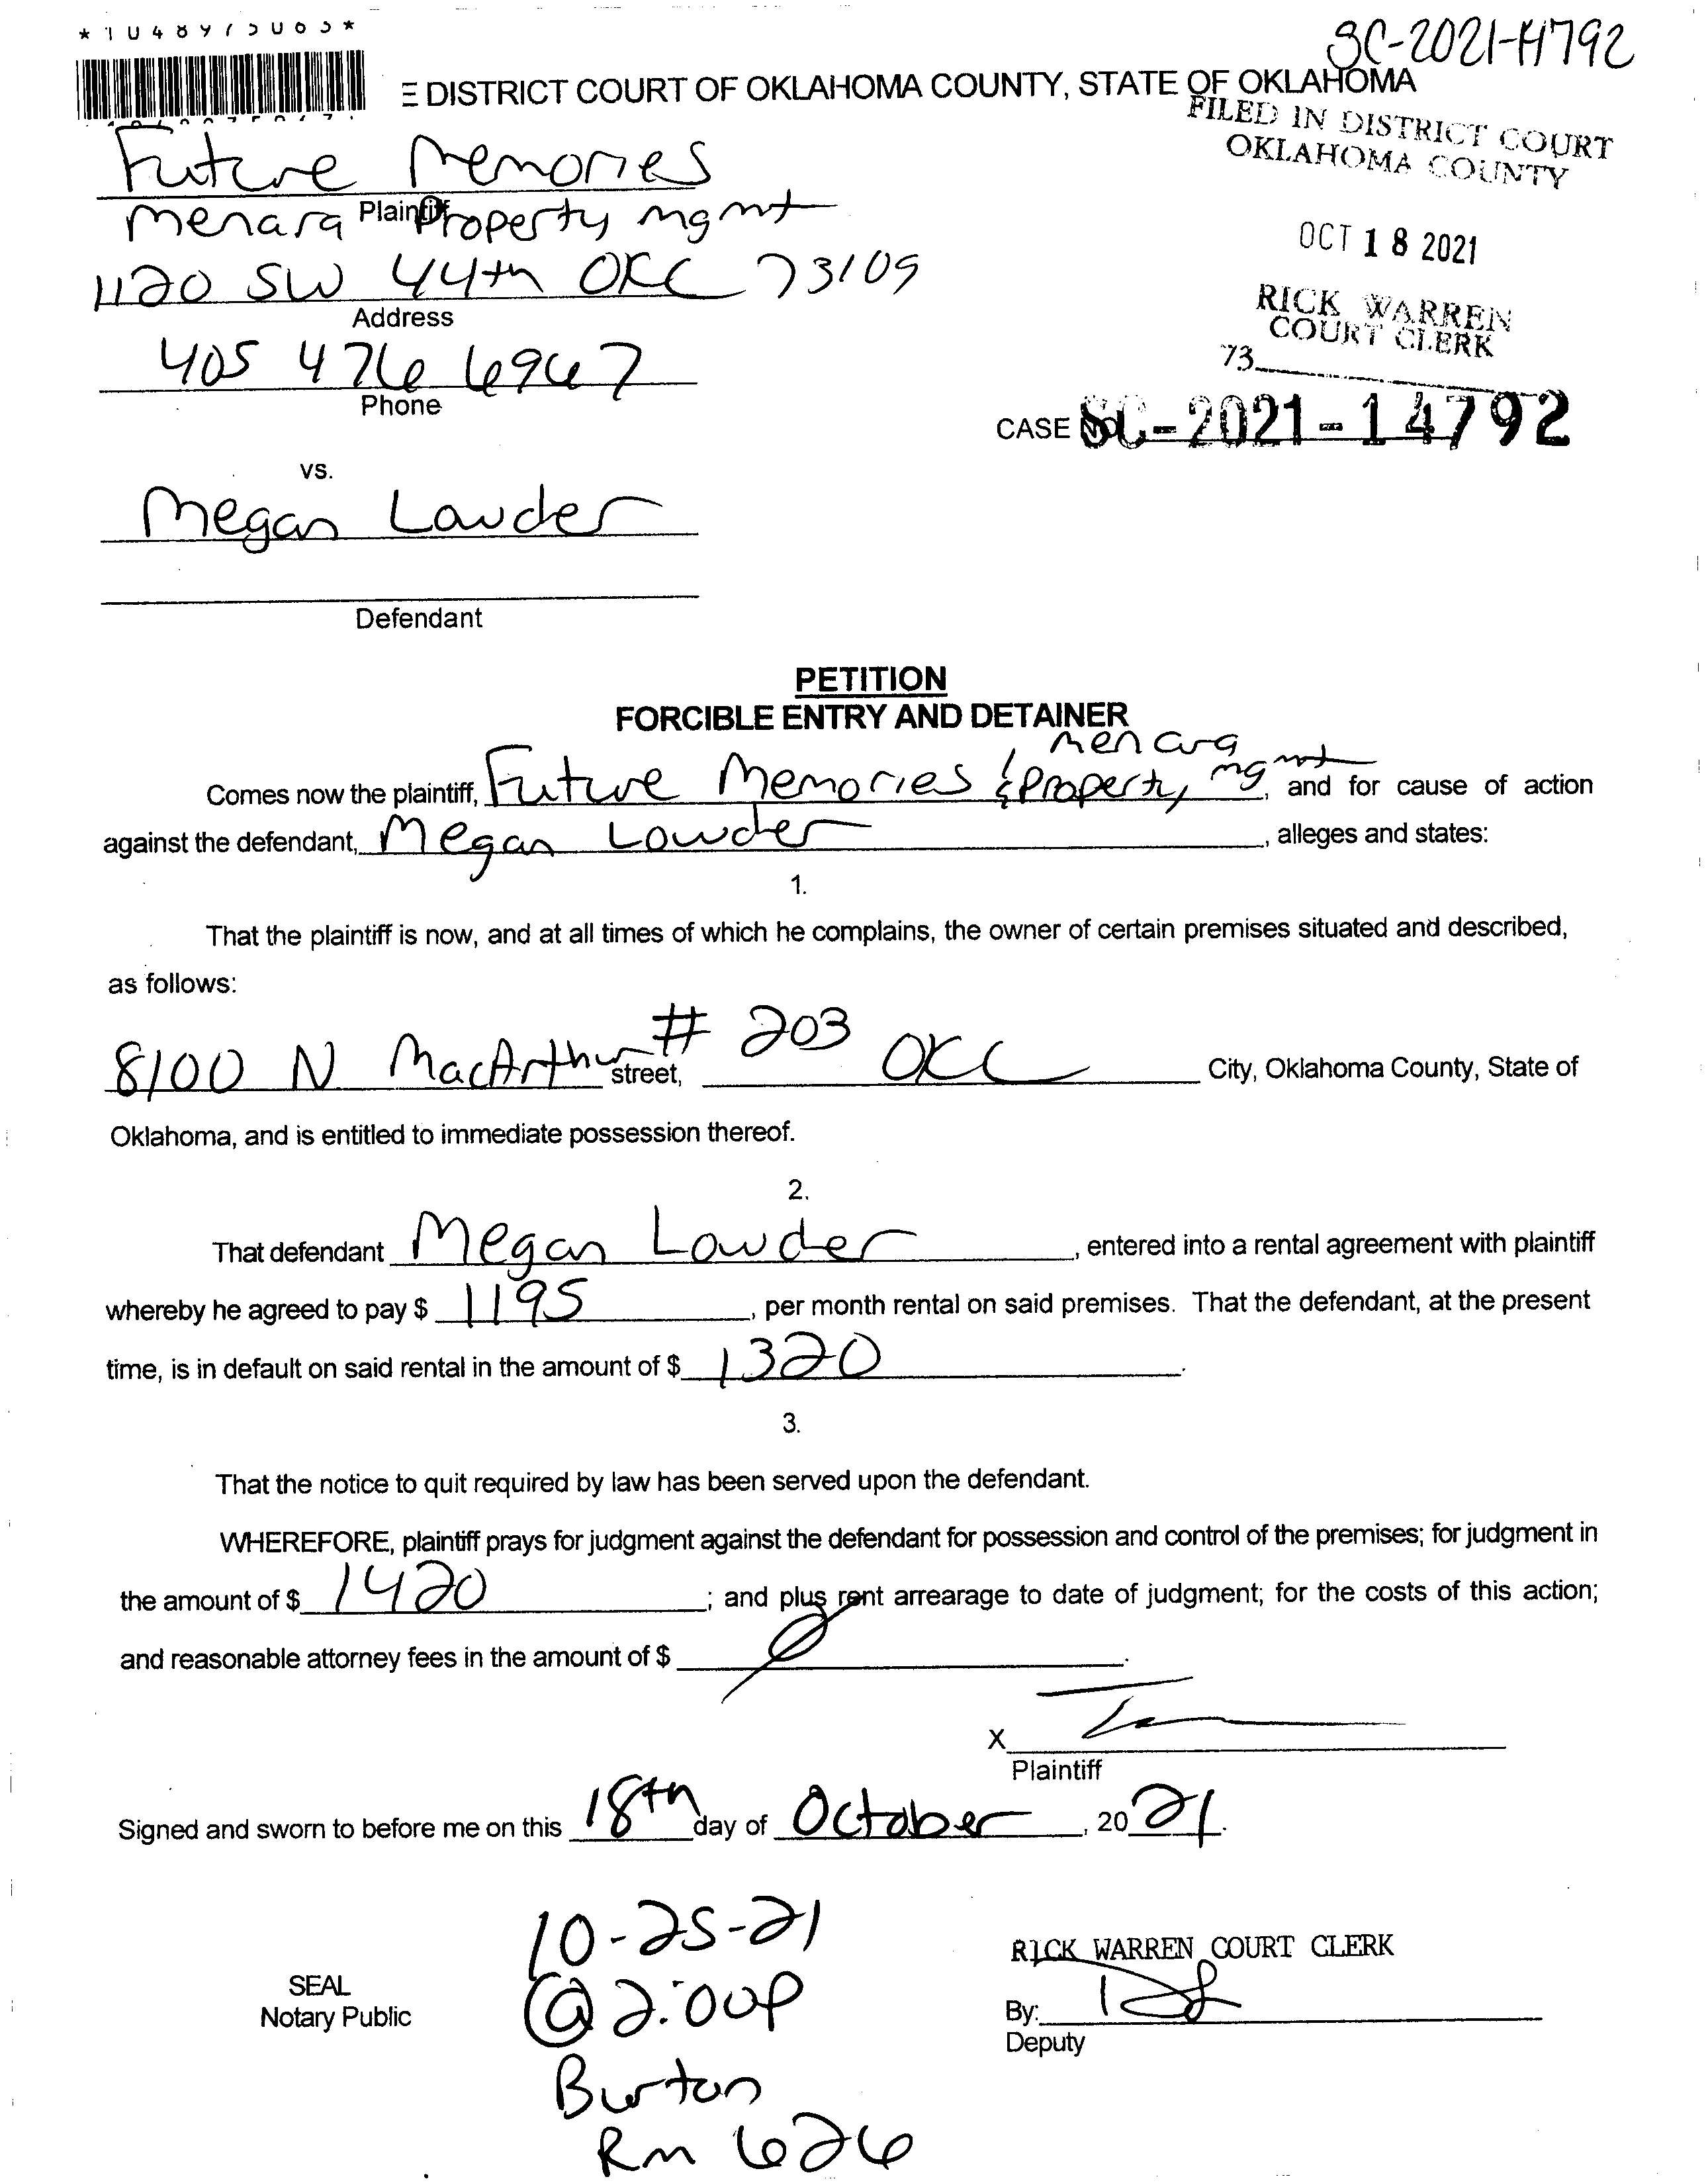 SC-2021-14792
E DISTRICT COURT OF OKLAHOMA COUNTY, STATE OF OKLAHOMA
FILED IN DISTRICT COURT
OKLAHOMA COUNTY
Future Memories
Plaintiff
Menara Property mgmt
OCT 18 2021
1120 SW 44th OKC 73109
Address
RICK WARREN
COURT CLERK
73
405 476 6967
Phone
CASE NO. SC-2021-14792
vs.
Megan Lowder
Defendant
PETITION
FORCIBLE ENTRY AND DETAINER
Comes now the plaintiff, Future Memories & Menara Property mgmt, and for cause of action
against the defendant, Megan Lowder, alleges and states:
1.
That the plaintiff is now, and at all times of which he complains, the owner of certain premises situated and described,
as follows:
8100 N MacArthur # 203 street, OKC City, Oklahoma County, State of
Oklahoma, and is entitled to immediate possession thereof.
2.
That defendant Megan Lowder, entered into a rental agreement with plaintiff
whereby he agreed to pay $ 1195, per month rental on said premises. That the defendant, at the present
time, is in default on said rental in the amount of $ 1320.
3.
That the notice to quit required by law has been served upon the defendant.
WHEREFORE, plaintiff prays for judgment against the defendant for possession and control of the premises; for judgment in
the amount of $ 1420; and plus rent arrearage to date of judgment; for the costs of this action;
and reasonable attorney fees in the amount of $ 0.
X
Plaintiff
Signed and sworn to before me on this 18th day of October, 2021.
10-25-21
@ 2:00p
Burton
Rm 626
SEAL
Notary Public
RICK WARREN COURT CLERK
By:
Deputy